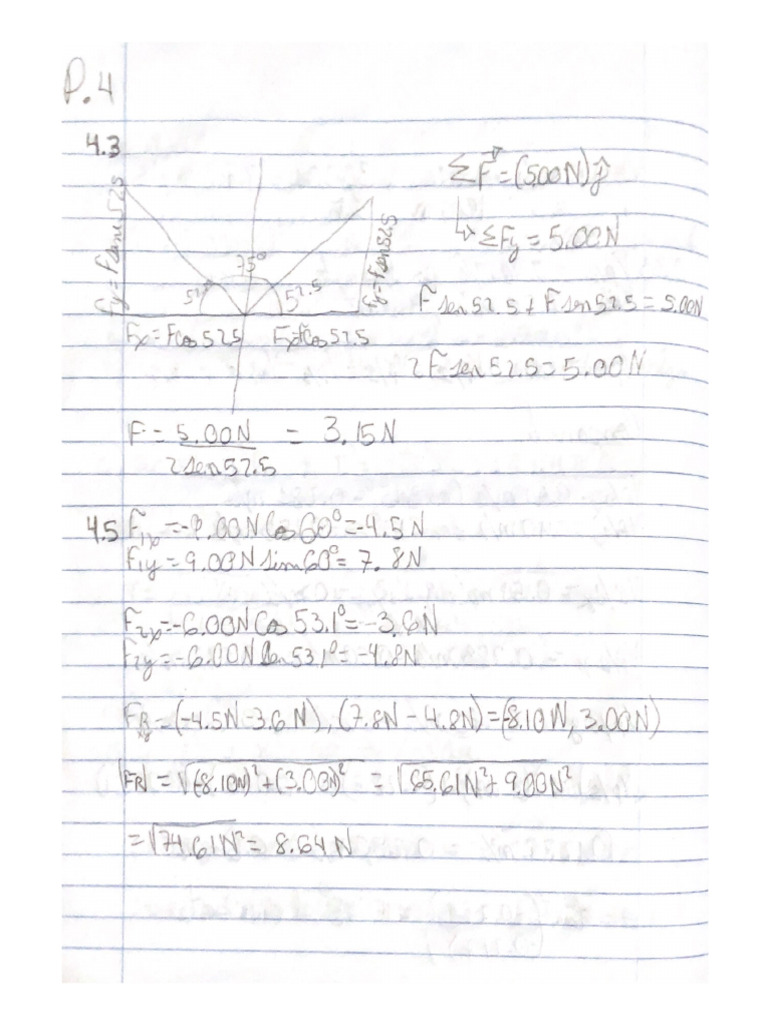 P.4
4.3
ΣF⃗ = (5.00N)ĵ
↳ ΣFy = 5.00N
75°
52.5
Fy = Fsen 52.5
Fx = Fcos 52.5 Fx=Fcos 52.5
F sen 52.5 + F sen 52.5 = 5.00N
2F sen 52.5 = 5.00N
F = 5.00N = 3.15N
2 sen 52.5
4.5 F1x = -9.00N Cos 60° = -4.5N
F1y = 9.00N sim 60° = 7.8N
F2x = -6.00N Cos 53.1° = -3.6N
F2y = -6.00N Sen 53.1° = -4.8N
FR = (-4.5N - 3.6N), (7.8N - 4.8N) = (-8.10N, 3.00N)
xy
|FR| = √(-8.10N)² + (3.00N)² = √65.61N² + 9.00N²
= √74.61N² = 8.64N